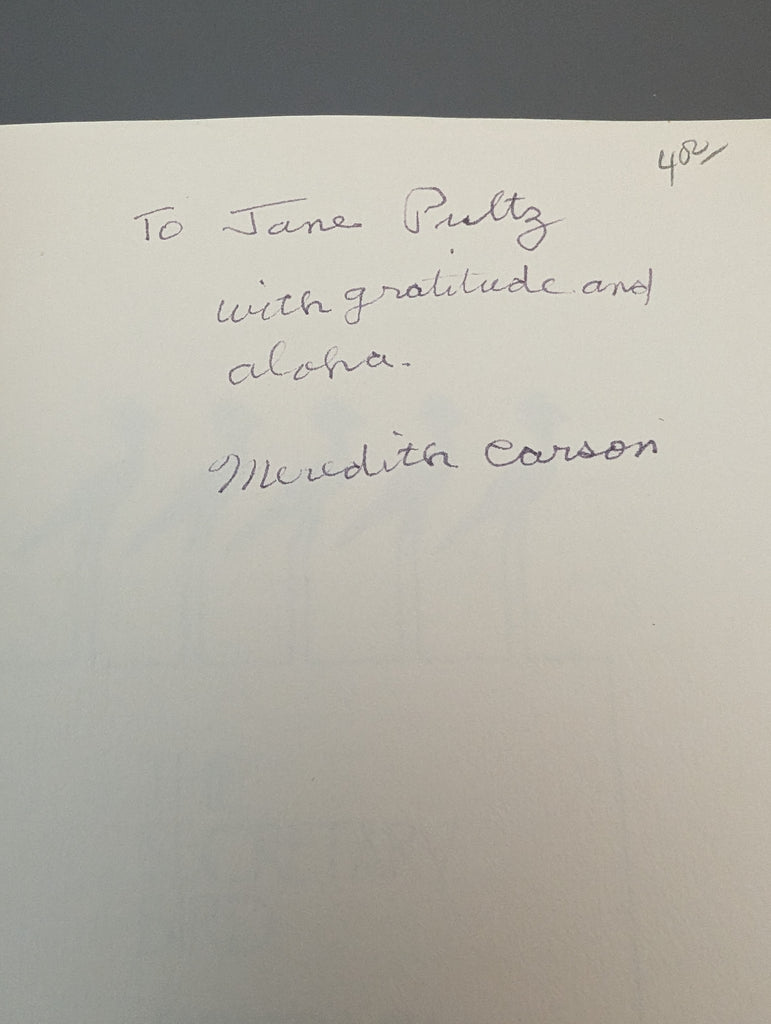 400/
To Jane Pultz
with gratitude and
aloha.
Meredith Carson